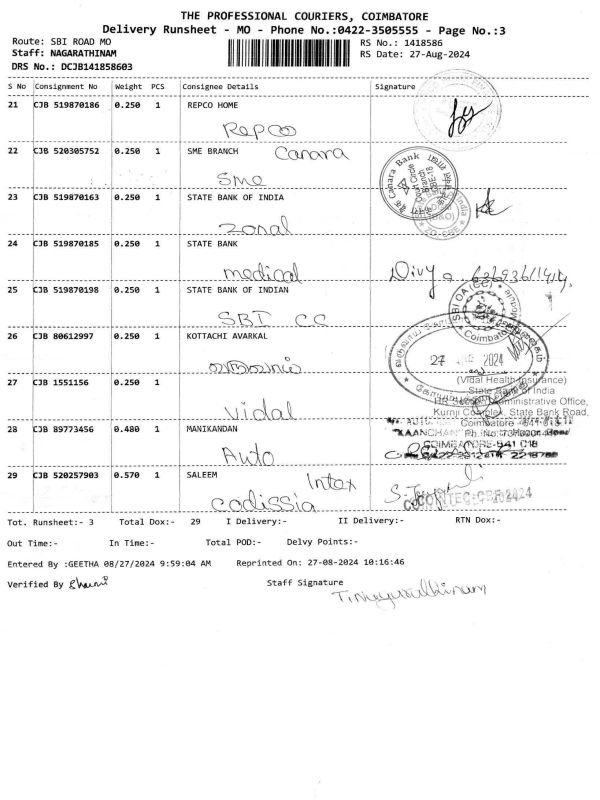 THE PROFESSIONAL COURIERS, COIMBATORE
Delivery Runsheet - MO - Phone No.:0422-3505555 - Page No.:3
Route: SBI ROAD MO RS No.: 1418586
Staff: NAGARATHINAM RS Date: 27-Aug-2024
DRS No.: DCJB141858603
S No Consignment No Weight PCS Consignee Details Signature
21 CJB 519870186 0.250 1 REPCO HOME
Repco
22 CJB 520305752 0.250 1 SME BRANCH Canara
SME
Canara Bank
23 CJB 519870163 0.250 1 STATE BANK OF INDIA
zonal
24 CJB 519870185 0.250 1 STATE BANK
medical Divya
25 CJB 519870198 0.250 1 STATE BANK OF INDIAN
SBI CC
SBI OA (CC)
Coimbatore
26 CJB 80612997 0.250 1 KOTTACHI AVARKAL
27 2024
27 CJB 1551156 0.250 1
Vidal
(Vidal Health Insurance)
State Bank of India
HR Section, Administrative Office,
Kurnji Complex, State Bank Road,
Coimbatore
28 CJB 89773456 0.480 1 MANIKANDAN
Auto
COIMBATORE-641 018
29 CJB 520257903 0.570 1 SALEEM Intex
codissia
Tot. Runsheet:- 3 Total Dox:- 29 I Delivery:- II Delivery:- RTN Dox:-
Out Time:- In Time:- Total POD:- Delvy Points:-
Entered By :GEETHA 08/27/2024 9:59:04 AM Reprinted On: 27-08-2024 10:16:46
Verified By Staff Signature